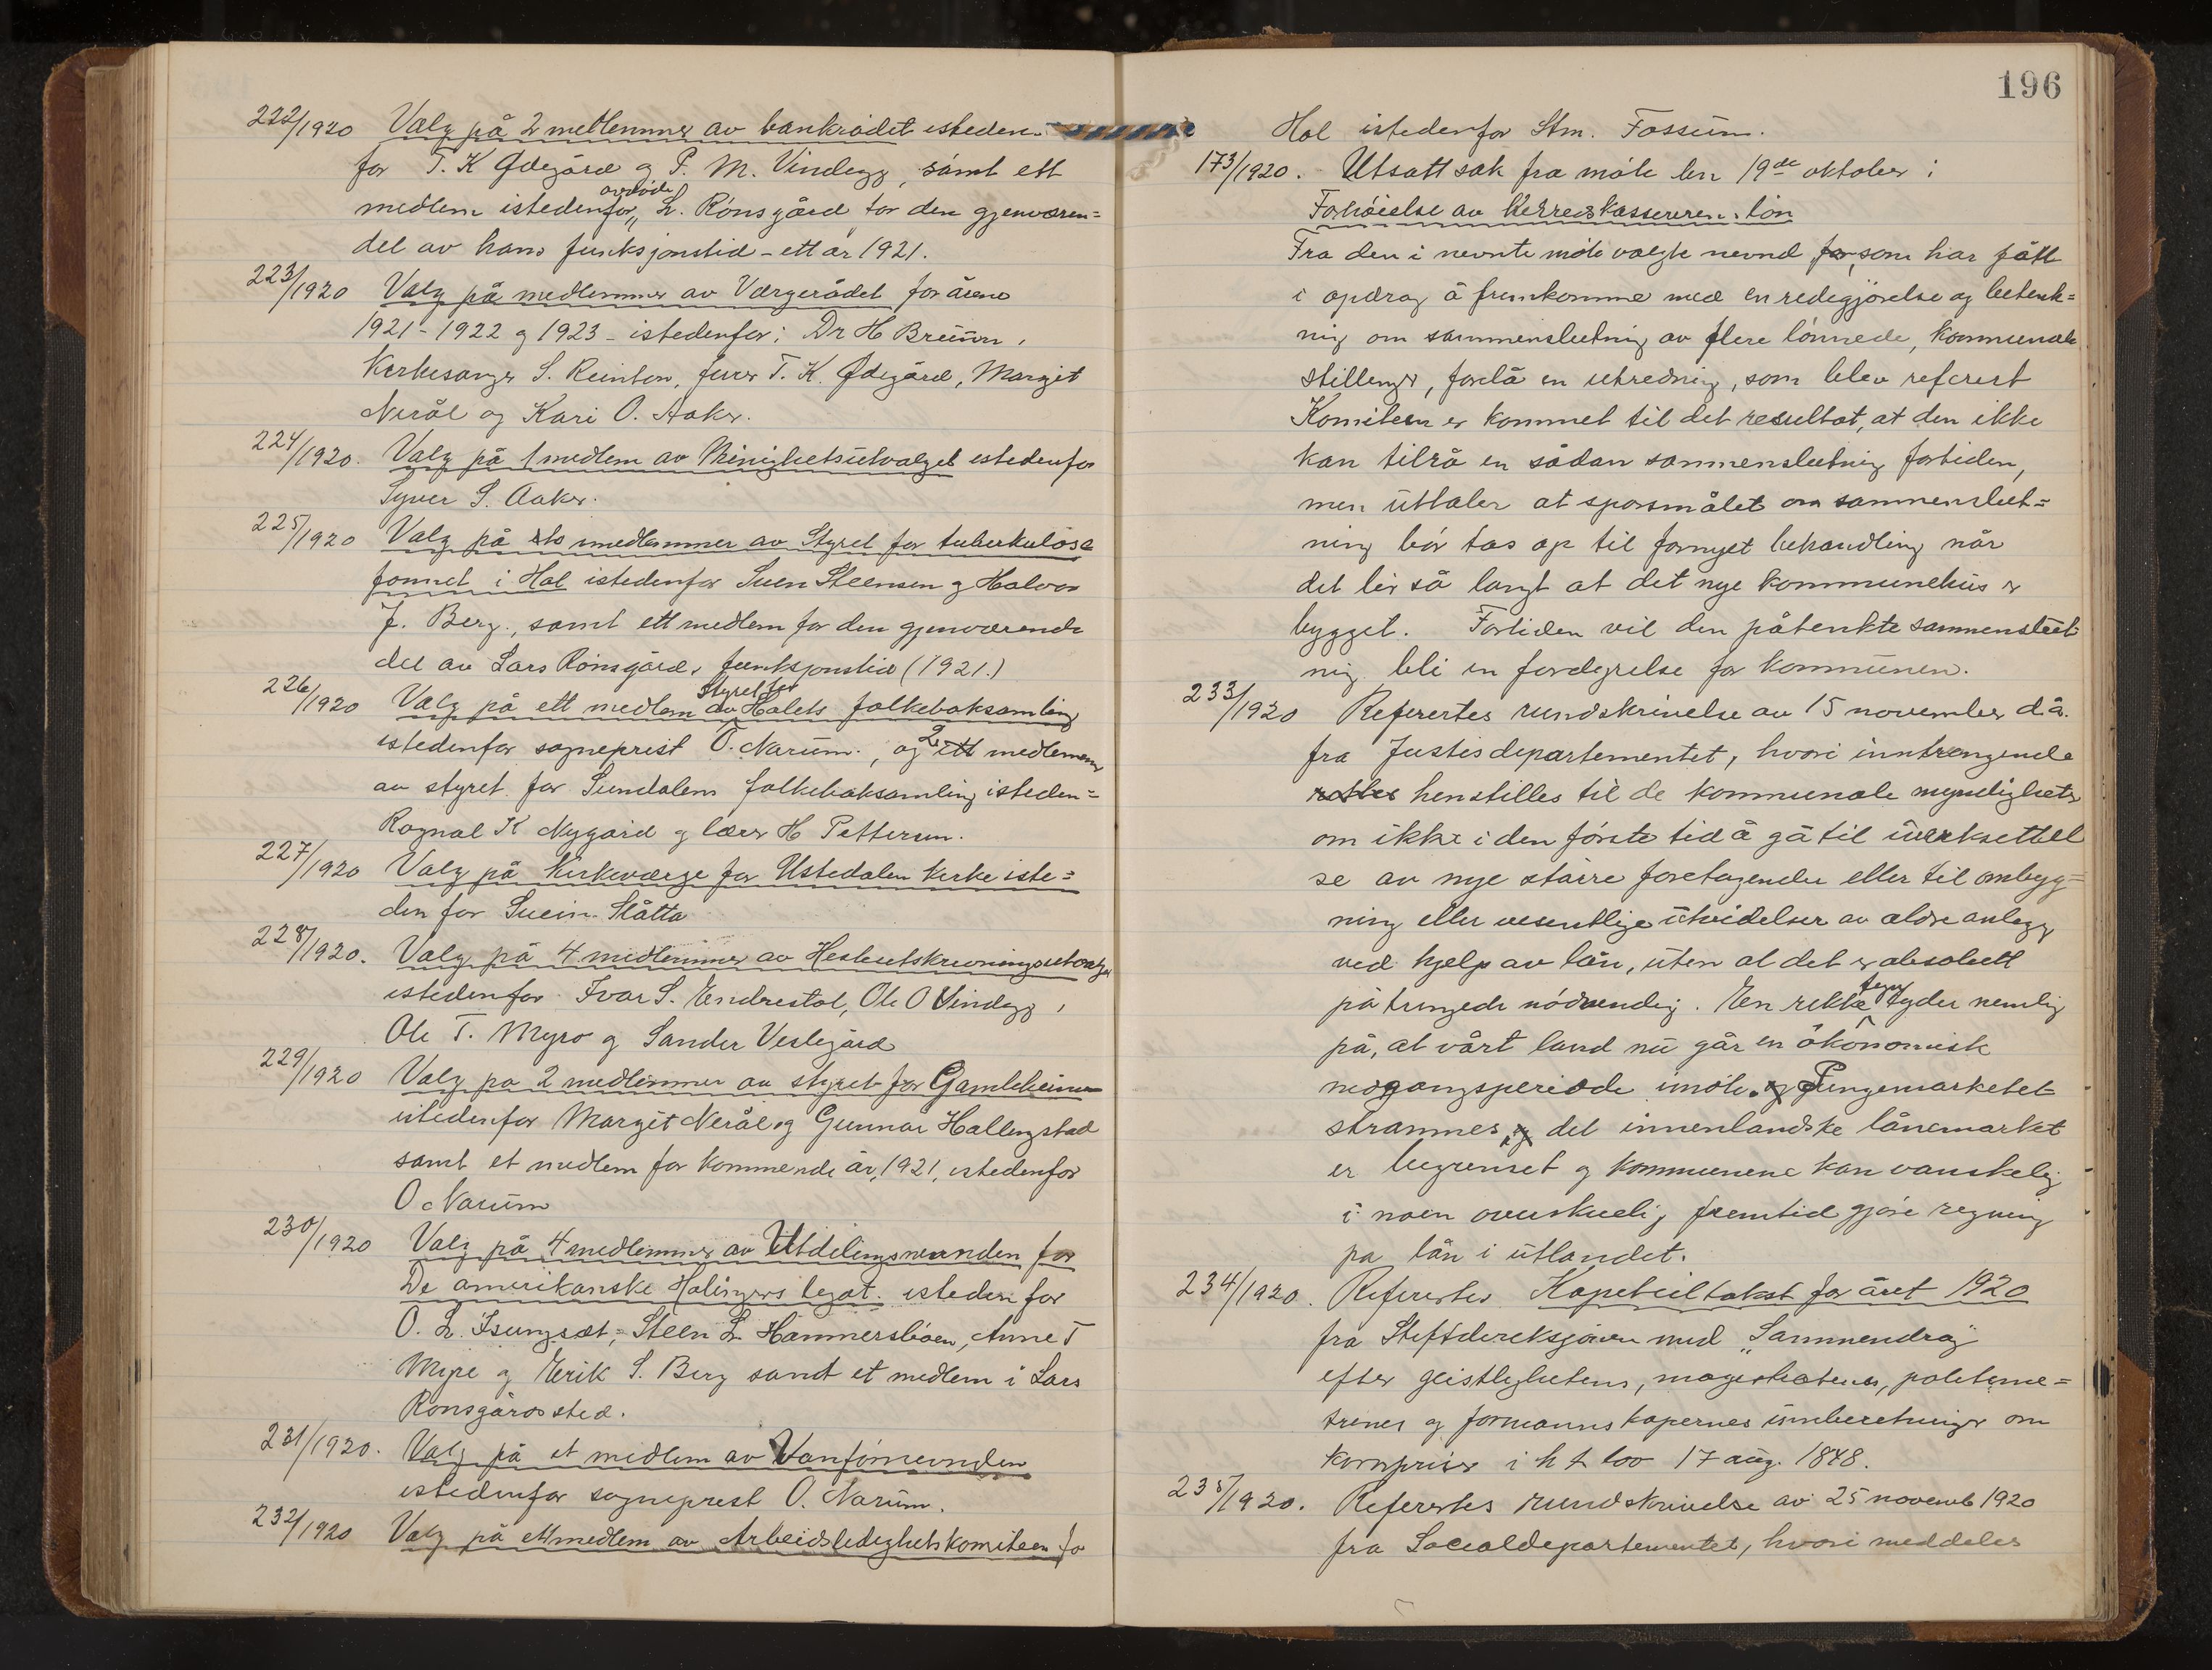 222/1920 Valg på 2 medlemmer av bankrådet isteden-
for T. K Ødegård og P. M. Vindegg, samt ett
medlem istedenfor avdöde L. Rönsgård for den gjenværen=
del av hans funksjonstid - ett år 1921.
223/1920 Valg på medlemmer av Værgerådet for årene
1921 - 1922 og 1923 - istedenfor: Dr H Bruun,
Kirkesanger S. Reinton, T. K. Ødegård, Margit
Nerål og Kari O. Aaker.
224/1920. Valg på 1 medlem av istedenfor
Syver S. Aaker.
225/1920 Valg på to medlemmer av Styret for tuberkulöse
fonnet i Hol istedenfor Svein Steensen og Halvor
J. Berg., samt ett medlem for den gjenværende
del av Lars Rönsgårds funksjonstid (1921.)
226/1920 Valg på ett medlem av styret for Holets folkeboksamling
istedenfor sogneprest O. Narum., og 2 ett medlemmer
av styret for Sundalens folkeboksamling isteden=
Ragnal K Nygård og lærer H Pettersen.
227/1920 Valg på Kirkeværge for Ustedalen kirke iste=
den for Svein Slåtta
228/1920. Valg på 4 medlemmer av Hesteutskrivningsutvalget
istedenfor Ivar S. Endrestol, Ole O Vindegg,
Ole T. Myro og Sander Vesligård
229/1920 Valg pa 2 medlemmer av styret for Gamleheimen
istedenfor Margit Nerål og Gunnar Hallingstad
samt et medlem for kommende år, 1921, istedenfor
O Narum
230/1920 Valg på 4 medlemmer av Utdelingsnevnden for
De amerikanske Halingers legat. isteden for
O. L. Isungset, Steen L. Hammersböen, Anne T
Myre og Erik S. Berg samt et medlem i Lars
Rönsgårds sted.
231/1920. Valg på et medlem av Vanförnevnden
istedenfor sogneprest O. Narum.
232/1920 Valg på ett medlem av Arbeidsledighetskomiteen for
196
Hol istedenfor Stm. Fossum.
173/1920. Utsatt sak fra möte den 19de oktober i
Forhöielse av herredskassererens lön
Fra den i nevnte möte valgte nevnd for, som har fått
i opdrag å fremkomme med en redegjörelse og betenk=
ning om sammenslutning av flere lönnede, kommunale
stillinger, forelå en utredning, som blev referert
Komiteen er kommet til det resultat, at den ikke
kan tilrå en sådan sammenslutning fortiden,
men uttaler at sporsmålet om sammenslut=
ning bör tas op til fornyet behandling når
det lir så langt at det nye kommunehus er
bygget. Fortiden vil den påtenkte sammenslut-
ning bli en fordyrelse for kommunen.
233/1920 Refertes rundskrivelse av 15 november d.å.
fra Justisdepartementet, hvori inntrengende
rettes henstilles til de kommunale myndigheter
om ikke i den förste tid å gå til iverksettel
se av nye större foretagender eller til ombyg=
ning eller vesentlige utvidelser av ældre anlegg
ved hjelp av lån, uten at det er absolutt
påtrengende nödvendig. En rekke tegn tyder nemlig
på, at vårt land nu går en ökonomisk
nedgangsperiode imöte. og Pengemarkedet
strammes, og det innenlandske lånemarket
er begrenset og kommunene kan vanskelig
i noen overskuelig fremtid gjöre regning
pa lån i utlandet.
234/1920. Refertes Kapiteltakst for året 1920
fra Stiftsdireksjonen med „Sammendrag
efter geistlighetens, magistratenes, politime=
trenes og formannskapernes innberetninger om
kornpriser i h t lov 17 aug. 1848.
235/1920. Refertes rundskrivelse av 25 novemb 1920
fra Socialdepartementet, hvori meddeles